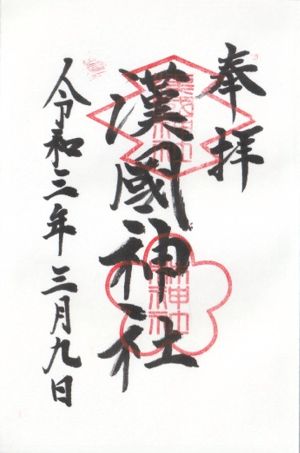 奉拝
漢國神社
令和三年三月九日